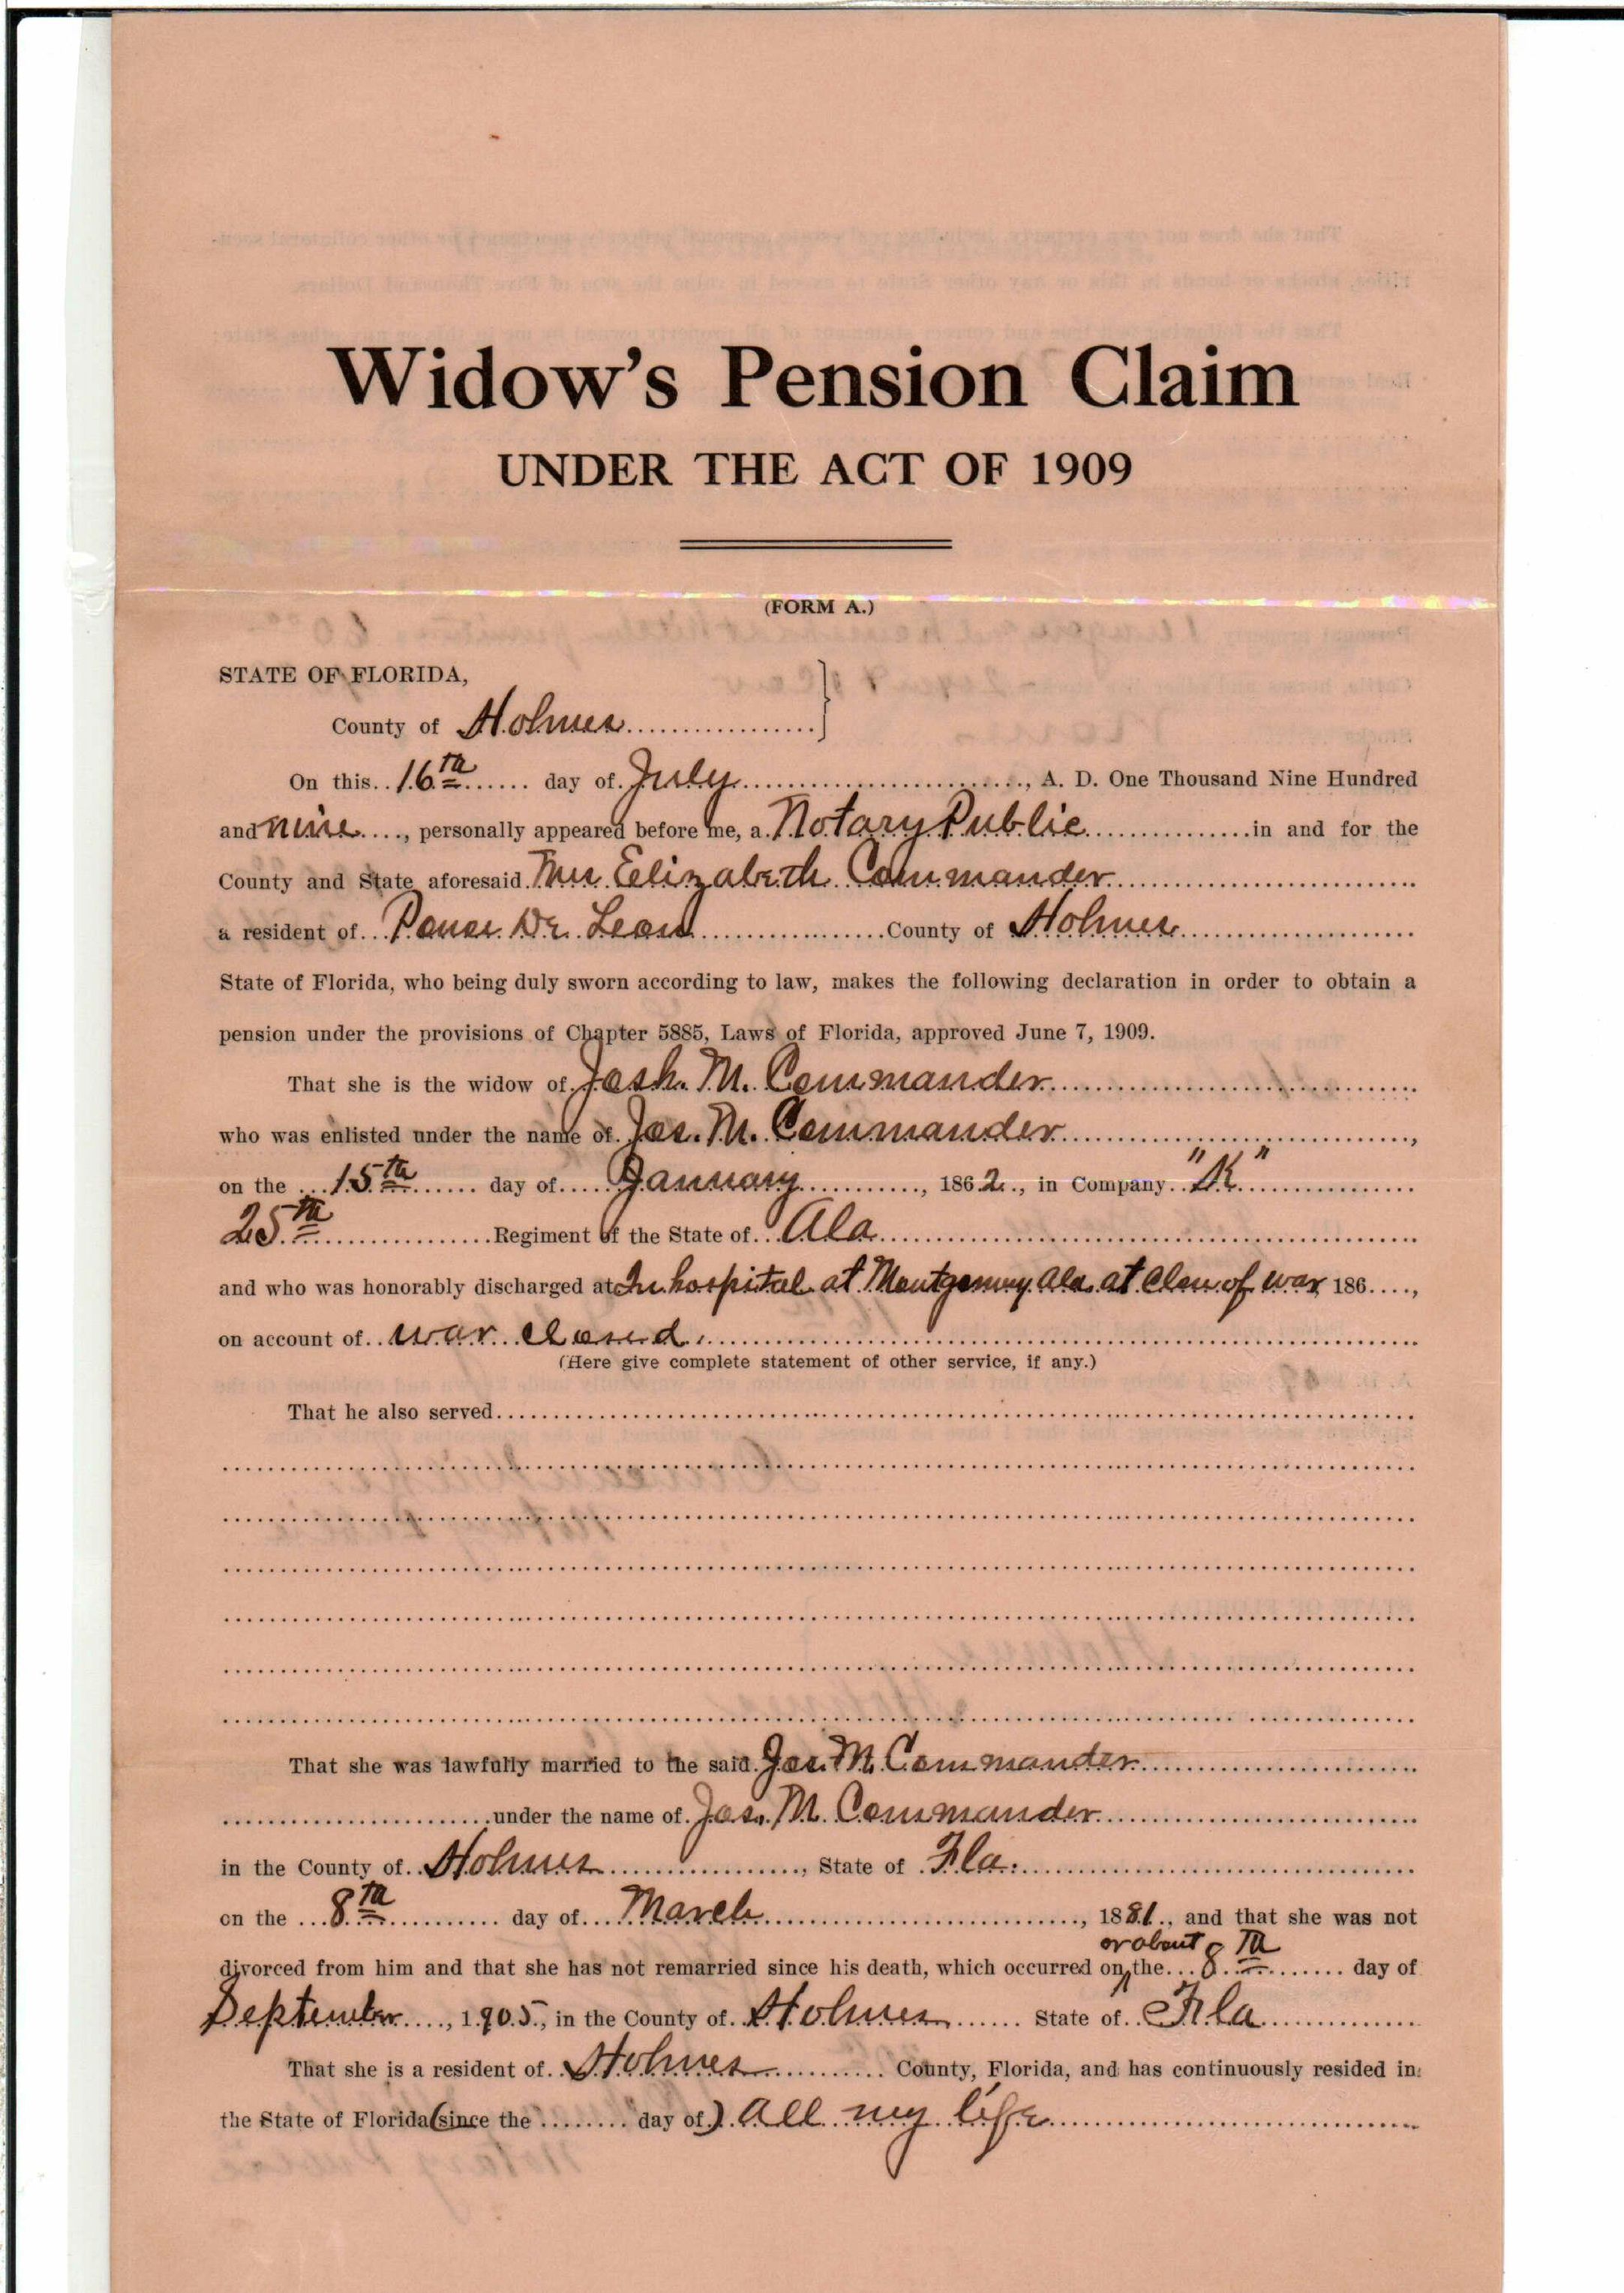 Widow's Pension Claim
UNDER THE ACT OF 1909
(FORM A.)
STATE OF FLORIDA,
County of Holmes
On this 16th day of July, A. D. One Thousand Nine Hundred
and nine, personally appeared before me, a Notary Public in and for the
County and State aforesaid Mrs Eelizabeth Commander
a resident of Ponce De Leon County of Holmes
State of Florida, who being duly sworn according to law, makes the following declaration in order to obtain a
pension under the provisions of Chapter 5885, Laws of Florida, approved June 7, 1909.
That she is the widow of Josh. M. Commander
who was enlisted under the name of Jos. M. Commander,
on the 15th day of January, 1862, in Company "K"
25th Regiment of the State of Ala
and who was honorably discharged at In hospital at Montgomery Ala at Close of war 186....,
on account of war closed.
(Here give complete statement of other service, if any.)
That he also served
That she was lawfully married to the said Jos. M. Commander
under the name of Jos. M. Commander
in the County of Holmes, State of Fla.
on the 8th day of March, 1881, and that she was not
or about
divorced from him and that she has not remarried since his death, which occurred on the 8th day of
September, 1905, in the County of Holmes State of Fla
That she is a resident of Holmes County, Florida, and has continuously resided in
the State of Florida (since the day of) All my life